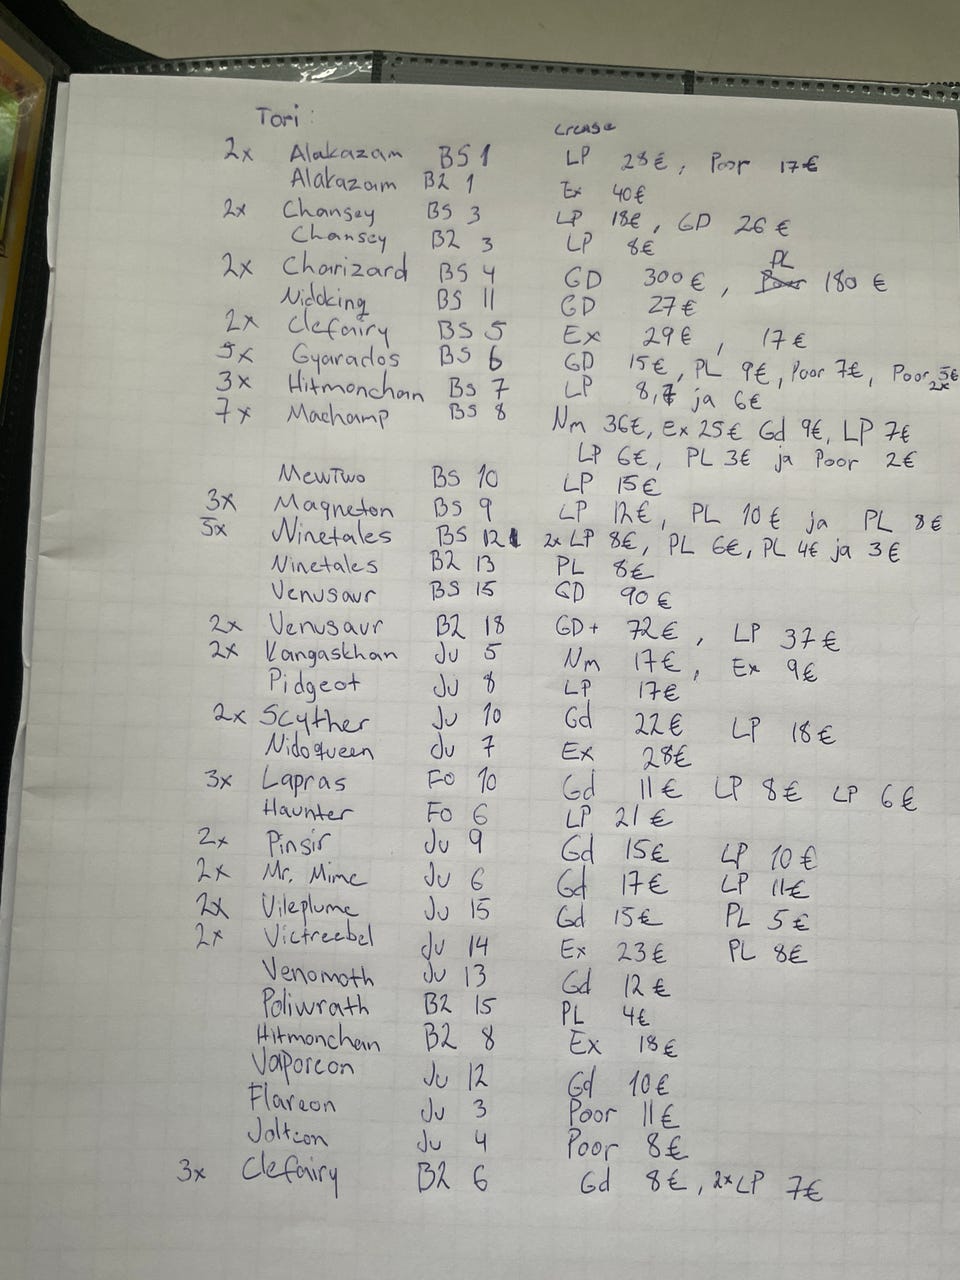 Tori:
crease
2x Alakazam BS 1 LP 28€, Poor 17€
Alakazam B2 1 Ex 40€
2x Chansey BS 3 LP 18€, GD 26€
Chansey B2 3 LP 8€
PL
2x Charizard BS 4 GD 300€, Poor 180€
Nidoking BS 11 GD 27€
2x Clefairy BS 5 Ex 29€, 17€
5x Gyarados BS 6 GD 15€, PL 9€, Poor 7€, Poor 5€ 2x
3x Hitmonchan BS 7 LP 8,7 ja 6€
7x Machamp BS 8 Nm 36€, Ex 25€ Gd 9€, LP 7€
LP 6€, PL 3€ ja Poor 2€
MewTwo BS 10 LP 15€
3x Magneton BS 9 LP 12€, PL 10€ ja PL 8€
5x Ninetales BS 12 2x LP 8€, PL 6€, PL 4€ ja 3€
Ninetales B2 13 PL 8€
Venusaur BS 15 GD 90€
2x Venusaur B2 18 GD+ 72€, LP 37€
2x Kangaskhan Ju 5 Nm 17€, Ex 9€
Pidgeot Ju 8 LP 17€
2x Scyther Ju 10 Gd 22€ LP 18€
Nidoqueen Ju 7 Ex 28€
3x Lapras Fo 10 Gd 11€ LP 8€ LP 6€
Haunter Fo 6 LP 21€
2x Pinsir Ju 9 Gd 15€ LP 10€
2x Mr. Mime Ju 6 Gd 17€ LP 11€
2x Vileplume Ju 15 Gd 15€ PL 5€
2x Victreebel Ju 14 Ex 23€ PL 8€
Venomoth Ju 13 Gd 12€
Poliwrath B2 15 PL 4€
Hitmonchan B2 8 Ex 18€
Vaporeon Ju 12 Gd 10€
Flareon Ju 3 Poor 11€
Jolteon Ju 4 Poor 8€
3x Clefairy B2 6 Gd 8€, 2x LP 7€